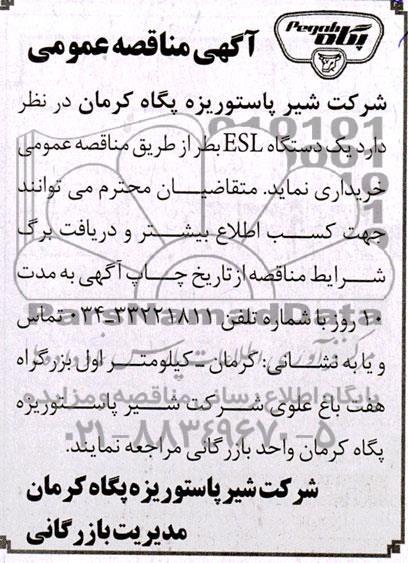 Pegah
پگاه
آگهی مناقصه عمومی
شرکت شیر پاستوریزه پگاه کرمان در نظر
دارد یک دستگاه ESL بطر از طریق مناقصه عمومی
خریداری نماید. متقاضیان محترم می توانند
جهت کسب اطلاع بیشتر و دریافت برگ
شرایط مناقصه از تاریخ چاپ آگهی به مدت
۱۰ روز با شماره تلفن ۳۳۲۲۱۸۱۱-۰۳۴ تماس
و یا به نشانی: کرمان - کیلومتر اول بزرگراه
هفت باغ علوی شرکت شیر پاستوریزه
پگاه کرمان واحد بازرگانی مراجعه نمایند.
شرکت شیر پاستوریزه پگاه کرمان
مدیریت بازرگانی
پایگاه اطلاع رسانی مناقصه و مزایده
۰۲۱-۸۸۳۴۹۶۷۰-۵